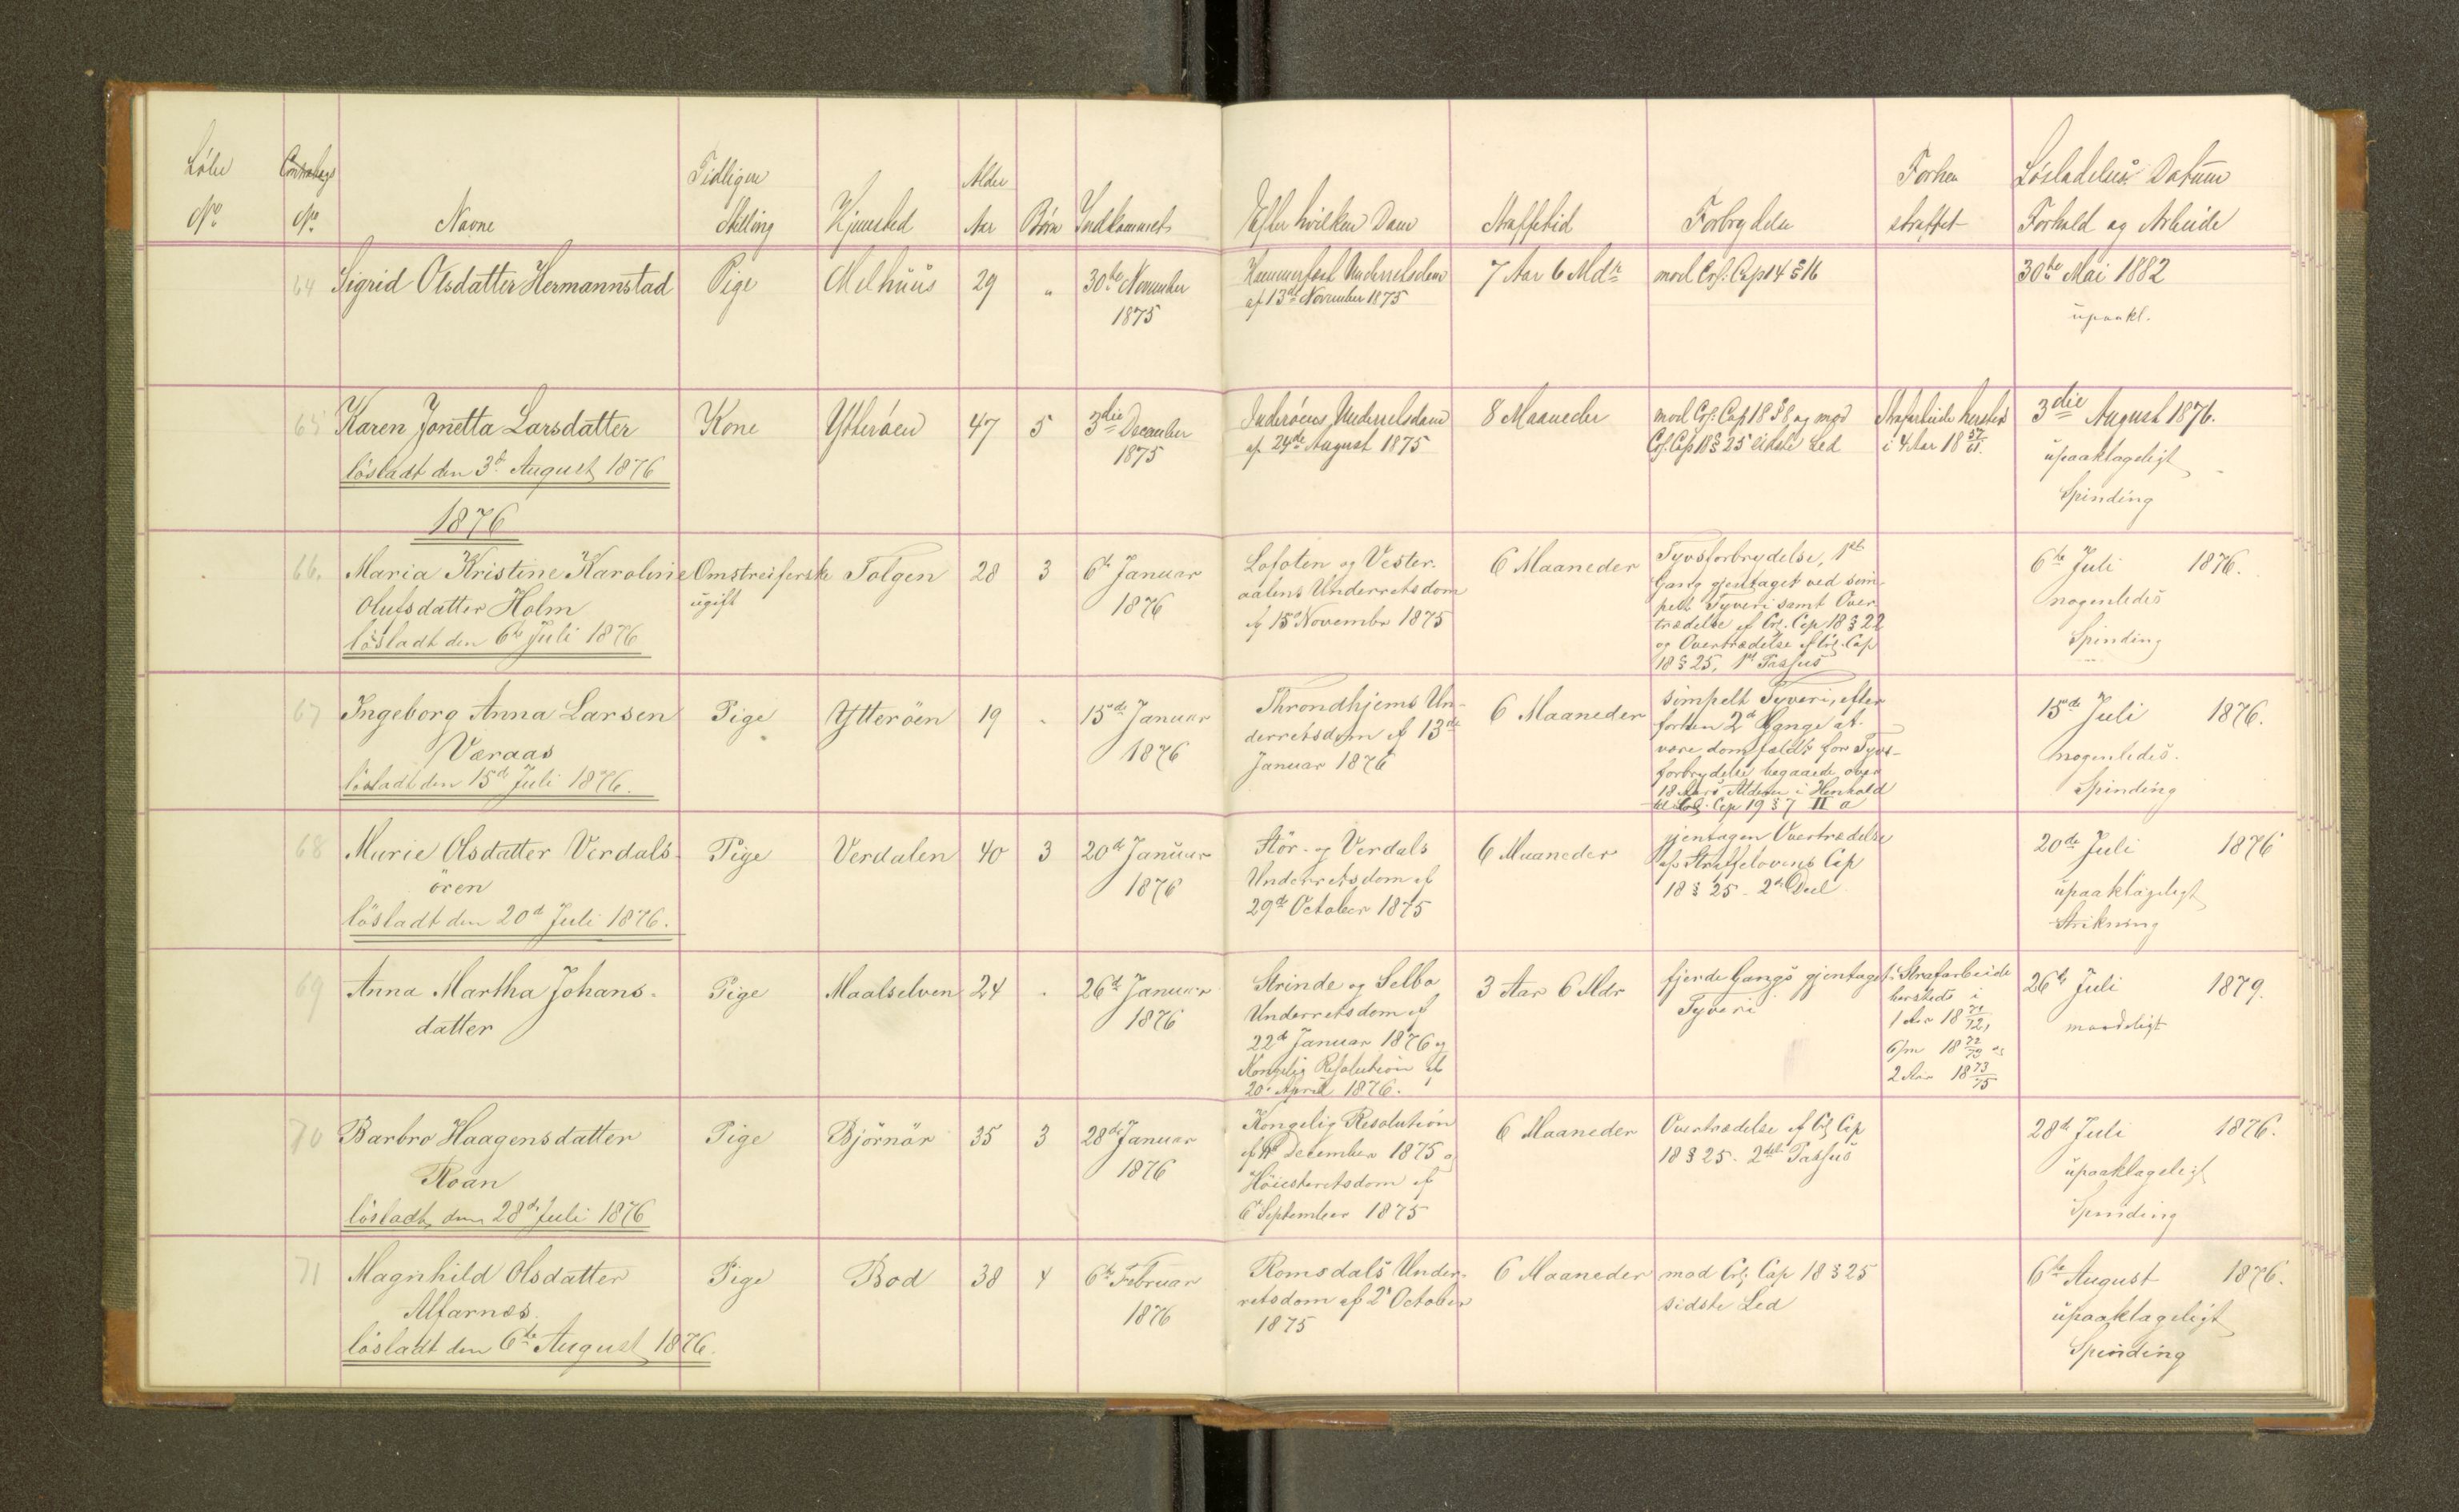 Løbe
No
No
Navne
Tidligere
Stilling
Hjemsted
Alder
Aar
Børn
Indkommet
Efter hvilken Dom
Straffetid
Forbrydelse
Forhen
straffet
Løsladelses Datum
Forhold og Arbeide
64
Sigrid Olsdatter Hermannstad
Pige
Melhuus
29
"
30te November
1875
Hammerfest Underretsdom
af 13de November 1875
7 Aar 6 Mdr
mod Crl. Cap 14 § 16
30te Mai 1882
upaakl.
65
Karen Jonetta Larsdatter
løsladt den 3d August 1876
Kone
Ytterøen
47
5
3die December
1875
Inderøens Underretsdom
af 24de August 1875
8 Maaneder
mod Crl. Cap 18 § 8 og mod
Crl. Cap 18 § 25 sidste Led
Strafarbeide hersteds
i 4 Aar 18 57/61.
3die August 1876.
upaaklageligt
Spinding
1876
66.
Maria Kristine Karoline
Olufsdatter Holm
løsladt den 6te Juli 1876
Omstreiferske
ugift
Tolgen
28
3
6te Januar
1876
Lofoten og Vester-
aalens Underretsdom
af 15 Novembr 1875
6 Maaneder
Tyvsforbrydelse, 1ste
Gang gjentaget ved sim-
pelt Tyveri samt Over-
trædelse af Crl. Cap. 18 § 22
og Overtrædelse af Crl. Cap
18 § 25, 1st Passus
6te Juli 1876.
nogenledes
Spinding
67
Ingeborg Anna Larsen
Væraas
løsladt den 15de Juli 1876.
Pige
Ytterøen
19
"
15de Januar
1876
Throndhjems Un-
derretsdom af 13de
Januar 1876
6 Maaneder
simpelt Tyveri, efter
forhen 2de Gange at
være domfældt for Tyvs-
forbrydelse begaaede over
18 Aars Alderen i Henhold
til Crl. Cap 19 § 7 II a
15de Juli 1876.
nogenledes.
Spinding
68
Marie Olsdatter Verdals-
øren
løsladt den 20d Juli 1876.
Pige
Verdalen
40
3
20de Januar
1876
Stør- og Verdals
Underretsdom af
29de October 1875
6 Maaneder
gjentagen Overtrædelse
af Straffelovens Cap
18 § 25 - 2den Deel
20de Juli 1876
upaaklageligt
Strikning
69
Anna Martha Johans-
datter
Pige
Maalselven
24
"
26de Januar
1876
Strinde og Selbo
Underretsdom af
22de Januar 1876 og
Kongelig Resolution af
20. April 1876.
3 Aar 6 Mdr
fjerde Gangs gjentaget
Tyveri
Strafarbeide
hersteds i
1 Aar 18 71/72,
6/m 18 72/73 og
2 Aar 18 73/75
26de Juli 1879.
maadeligt
70
Barbro Haagensdatter
Roan
løsladt den 28de Juli 1876
Pige
Bjørnør
35
3
28de Januar
1876
Kongelig Resolution
December 1875 og
Høiesteretsdom af
6 September 1875
6 Maaneder
Overtrædelse af Crl Cap
18 § 25 - 2det Passus
28de Juli 1876.
upaaklageligt
Spinding
71
Magnhild Olsdatter
Alfarnæs.
løsladt den 6te August 1876.
Pige
Bod
38
4
6te Februar
1876
Romsdals Under-
retsdom af 2n October
1875
6 Maaneder
mod Crl. Cap 18 § 25
sidste Led
6te August 1876.
upaaklageligt
Spinding